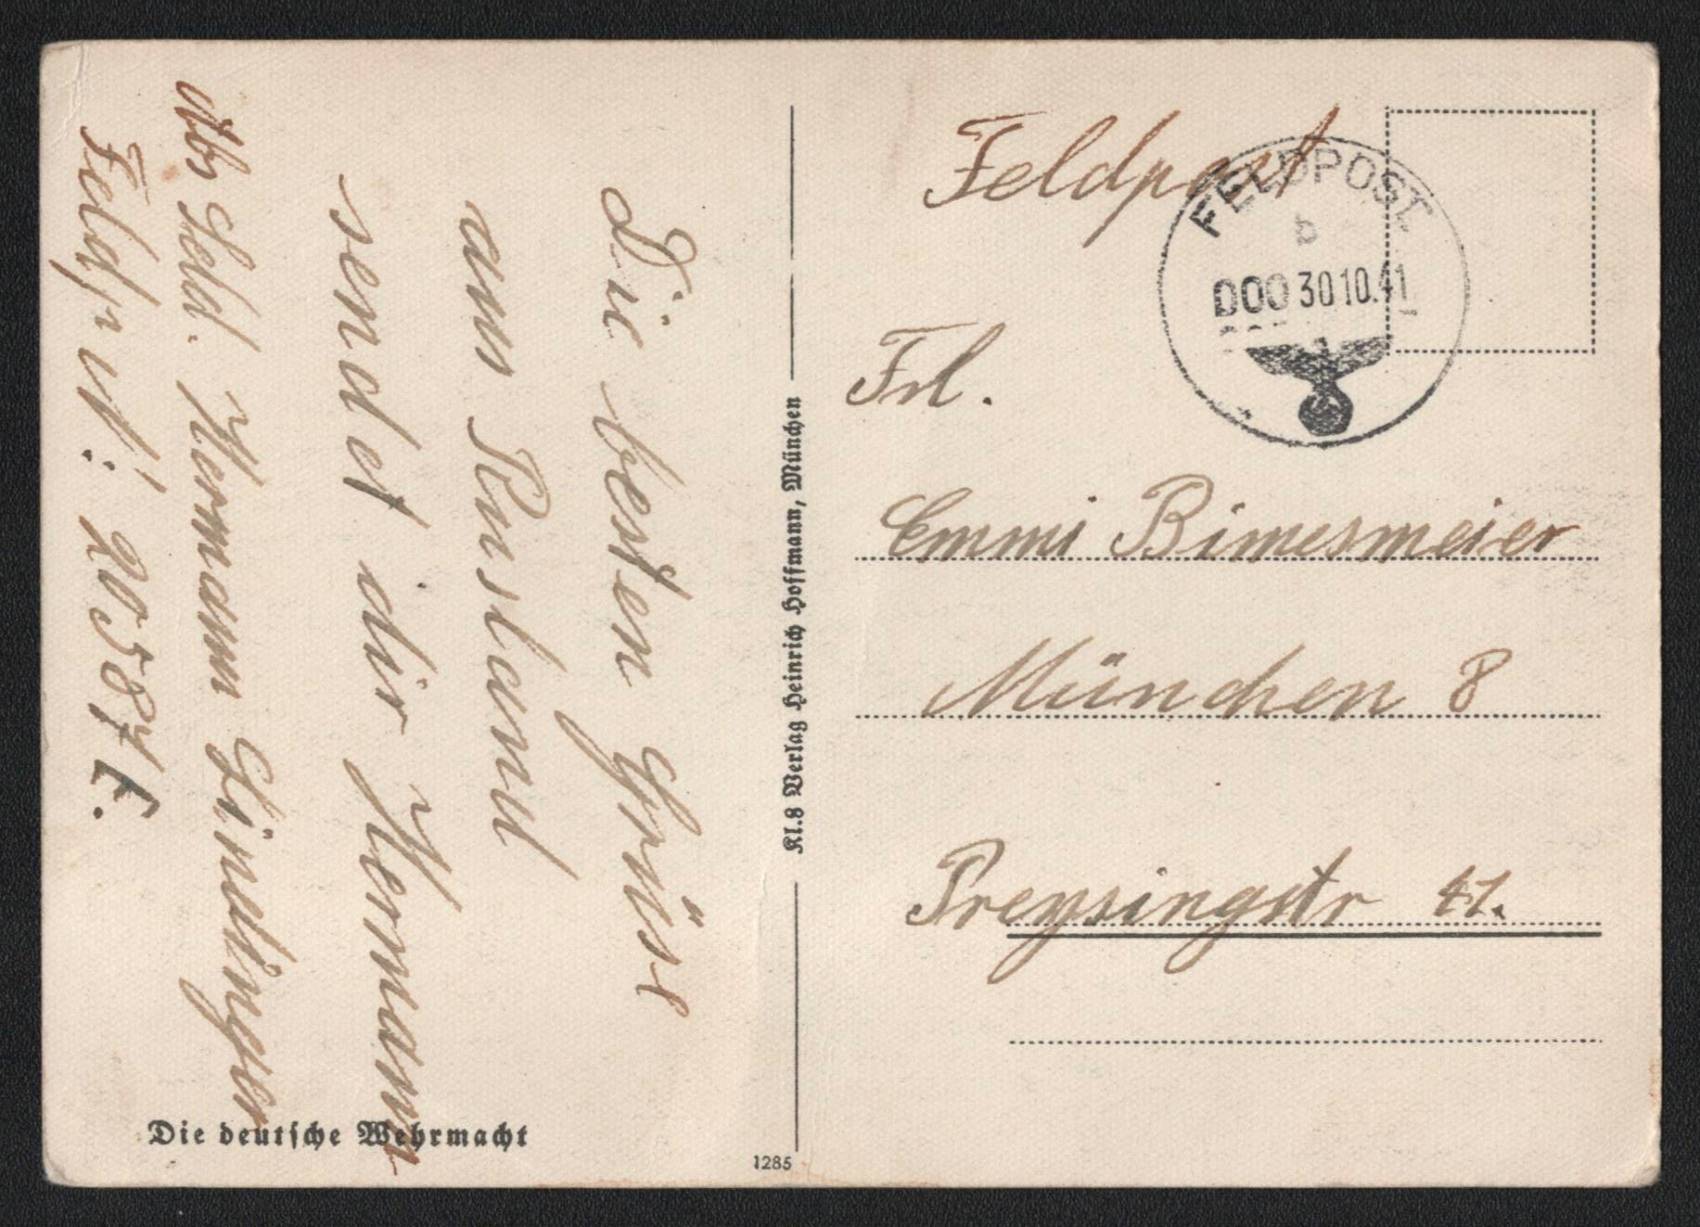 Die besten Grüse
aus Rusland
sendet dir Hermann
Abs Sold. Hermann
Feldp. N: 20587 F.
Die deutsche Wehrmacht
Kl.8 Verlag Heinrich Hoffmann, München
1285
Feldpost
FELDPOST
b
30.10.41
Frl.
Emmi Bimesmeier
München 8
Preysingstr 41.